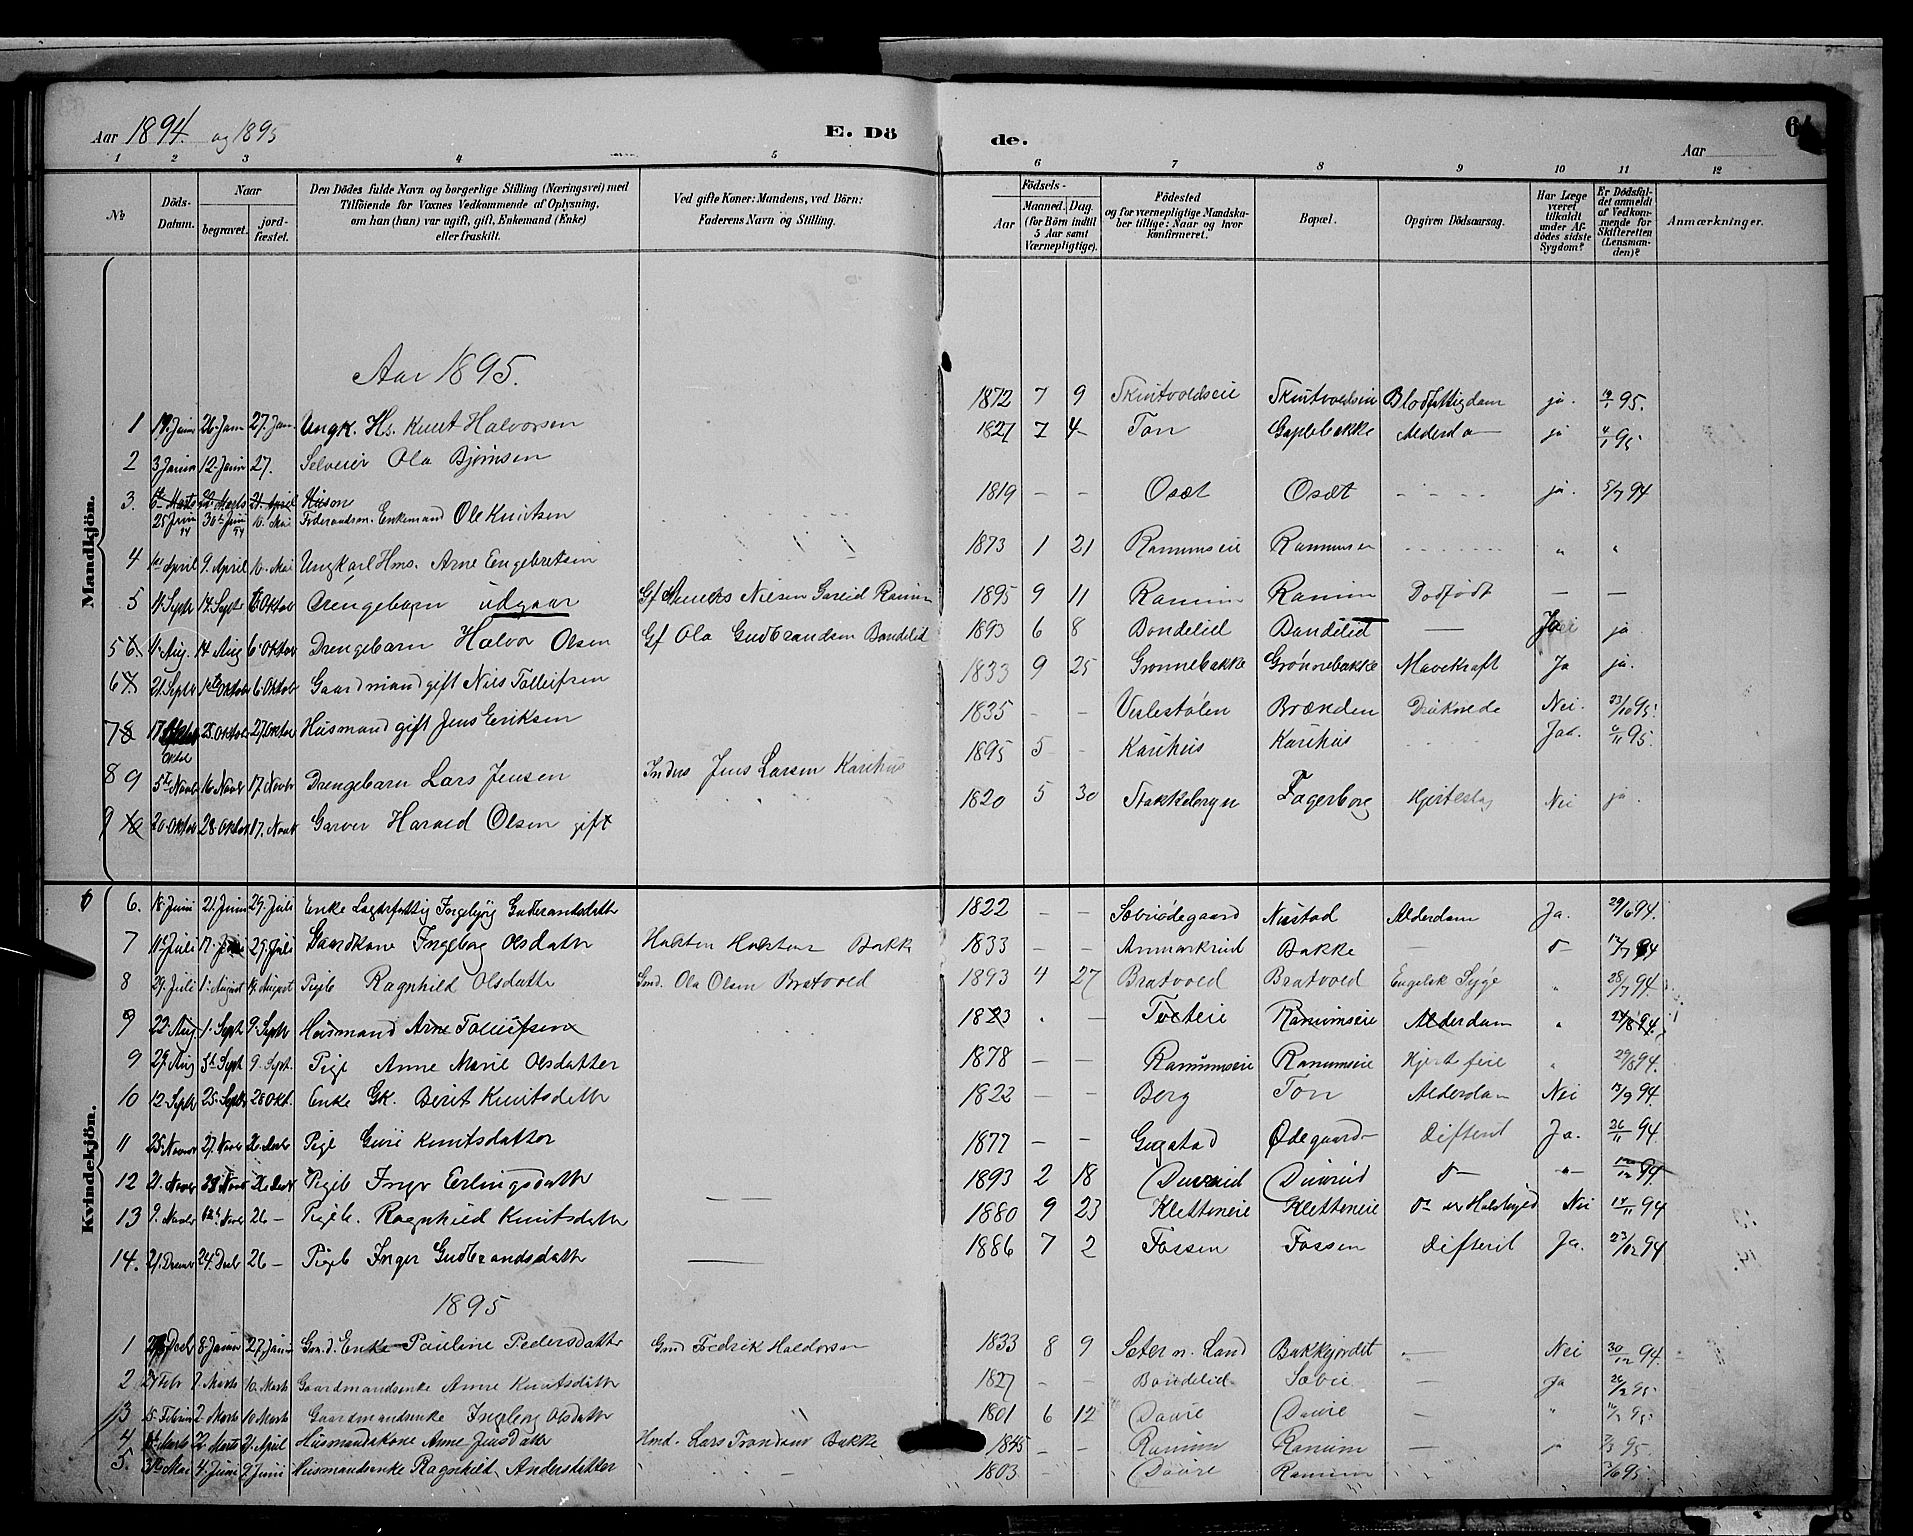 Aar 1894. og 1895
E. Dö de.
Aar
64
1 2 3 4 5 6 7 8 9 10 11 12
No
Döds-Datum.
Naar
begravet.
jordfæstet.
Den Dödes fulde Navn og borgerlige Stilling (Næringsvei) med
Tilföiende for Voxnes Vedkommende af Oplysning,
om han (hun) var ugift, gift, Enkemand (Enke)
eller fraskilt.
Ved gifte Koner: Mandens, ved Börn:
Faderens Navn og Stilling.
Födsels-
Aar
Maaned. Dag.
(for Börn indtil
5 Aar samt
Værnepligtige).
Födested
og for værnepligtige Mandskaber tillige: Naar og hvor
konfirmeret.
Bopæl.
Opgiven Dödsaarsag.
Har Læge
været
tilkaldt
under Afdödes sidste
Sygdom?
Er Dödsfaldet anmeldt
af Vedkommende for
Skifteretten
(Lensmanden)?
Anmærkninger.
Mandkjön.
Aar 1895.
1 19. Janr 26. Janr 27. Jan Ungk. Hs. Knut Halvorsen 1872 7 9 Skutvoldseie Skutvoldseie Blodfattigdom ja. 19/1 95.
2 3 Januar 12. Janr 27. Selveier Ola Bjørnsen 1827 7 4 Ton Gaplebakke Alderd ja 4/1 95
3. 6te Marts 22 Marts 21 April Huson
25 Juni 94 30te Juni 94 10. Mai Føderaadsm. Enkemand Ole Knutsen 1819 - - Osæt Osæt ja. 5/7 94
4 1te April 9. April 10. Mai Ungkarl Hms. Arne Engebretsen 1873 1 21 Ranumseie Ranumseie " "
5 4 Septr 14. Septr 6 Oktobr Drengebarn udgaar Gf Anders Nilsen Gareid Ranum 1895 9 11 Ranum Ranum Dødfødt - -
5 6. 4. Aug. 14 Aug 6. Oktobr Drengebarn Halvor Olsen Gf Ola Gudbrandsen Bondelid 1893 6 8 Bondelid Bondelid - Ja ja
6 7. 21. Septr 1ste Oktobr 6. Oktobr Gaardmand gift Nils Tollefsen 1833 9 25 Grønnebakke Grønnebakke Mavekraft Ja ja.
7 8 17 Oktbr 25. Oktobr 27 Oktobr Husmand gift Jens Eriksen 1835 - - Veslestølen Brænden Druknede Nei. 23/10 95.
8 9 5te Novbr 16 Novbr 17. Novbr Drengebarn Lars Jensen Inders Jens Larsen Karihus 1895 5 - Karihus Karihus Jaa. 6/11 95.
9 10 20 Oktobr 28 Oktobr 17. Novbr Garver Harald Olsen gift 1820 5 30 Stakkebryn Fagerborg Hjerteslag Nei ja.
Kvindekjön.
6. 18. Juni 21. Juni 29. Juli Enke Lægdsfattig Ingebjørg Gudbrandsdatter 1822 - - Sæviødegaard Nustad Alderdom Ja. 29/6 94.
7 11te Juli 17. Juli 29. Juli Gaardkone Ingeborg Olsdatter Halsten Halstens Bakke 1833 - - Anmarkrud Bakke - o- 12/7 94
8 29. Juli 1ste August 4. August Pigeb Ragnhild Olsdatter Gmd. Ola Olsen Bratvold 1893 4 27 Bratvold Bratvold Engelsk Syge " 28/7 94.
9 22. Aug 1. Septr 9. Septr Husmand Arne Tollefsen 1823 . - Tosteie Ranumseie Alderdom " 24/8 94.
9 29. Aug 5te Septr 9. Sept. Pige Anne Marie Olsdatter 1878 - - Ranumseie Ranumseie Hjertfeil " 29/8 94.
10 12. Septr 25. Septbr 28 Okt. Enke Gk. Berit Knutsdatter 1822 - - Berg Ton Alderdom Nei 15/9 94.
11 25. Novbr 27. Novbr 26 Decbr Pige Guri Knutsdatter 1877 - - Gugstad Ødegaard Difterit Ja. 26/11 94.
12 21. Novbr 28 Novbr 26 Decbr Pigeb Inger Erlingsdatter 1893 2 18 Duverud Duverud o- -"- 94
13 9. Novbr Novbr 26 - Pigeb. Ragnhild Knutsdatter 1880 9 23 Kletteneie Kletteneie o- er Halsbyld Nei 14/11 94
14. 21. Decbr 24. Decbr 26 - Pigeb Inger Gudbrandsdatter 1886 7 2 Fossen Fossen Difterit Ja. 23/12 94
1895
1 Decbr 8 Januar 27. Januar Gmd. Enke Pauline Pedersdatter Gmd Fredrik Haldorsen 1833 8 9 Sæter n. Land Bakkejordet - Nei 30/12 94.
2 24 Febr 7. Marts 10. Marts Gaardmandsenke Anne Knutsdatter 1827 - - Bondelid Sævie - Ja 26/2 95
3 5. Februar 2. Marts 10 Marts Gaardmandsenke Ingeborg Olsdatter 1801 6 12 Daure Daure - " 95
4 Marts 22. Marts 21. April Husmandskone Anne Jensdatter Hmd. Lars Trondsen Bakke 1845 - - Ranum Ranum - ja 95.
5. 31te Mai 4. Juni 9 Juni Husmandsenke Ragnhild Andersdatter 1803 - - Daure Ranum 95.